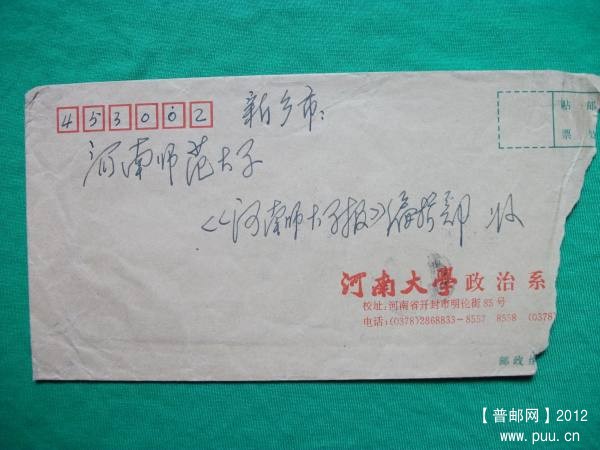 453002
新乡市：
贴 邮
票
河南师范大学
《河南师大学报》编辑部 收
河南大學政治系
校址：河南省开封市明伦街85号
电话：(0378)2868833－8557 8558 (0378)
邮政
【普邮网】2012
www.puu.cn